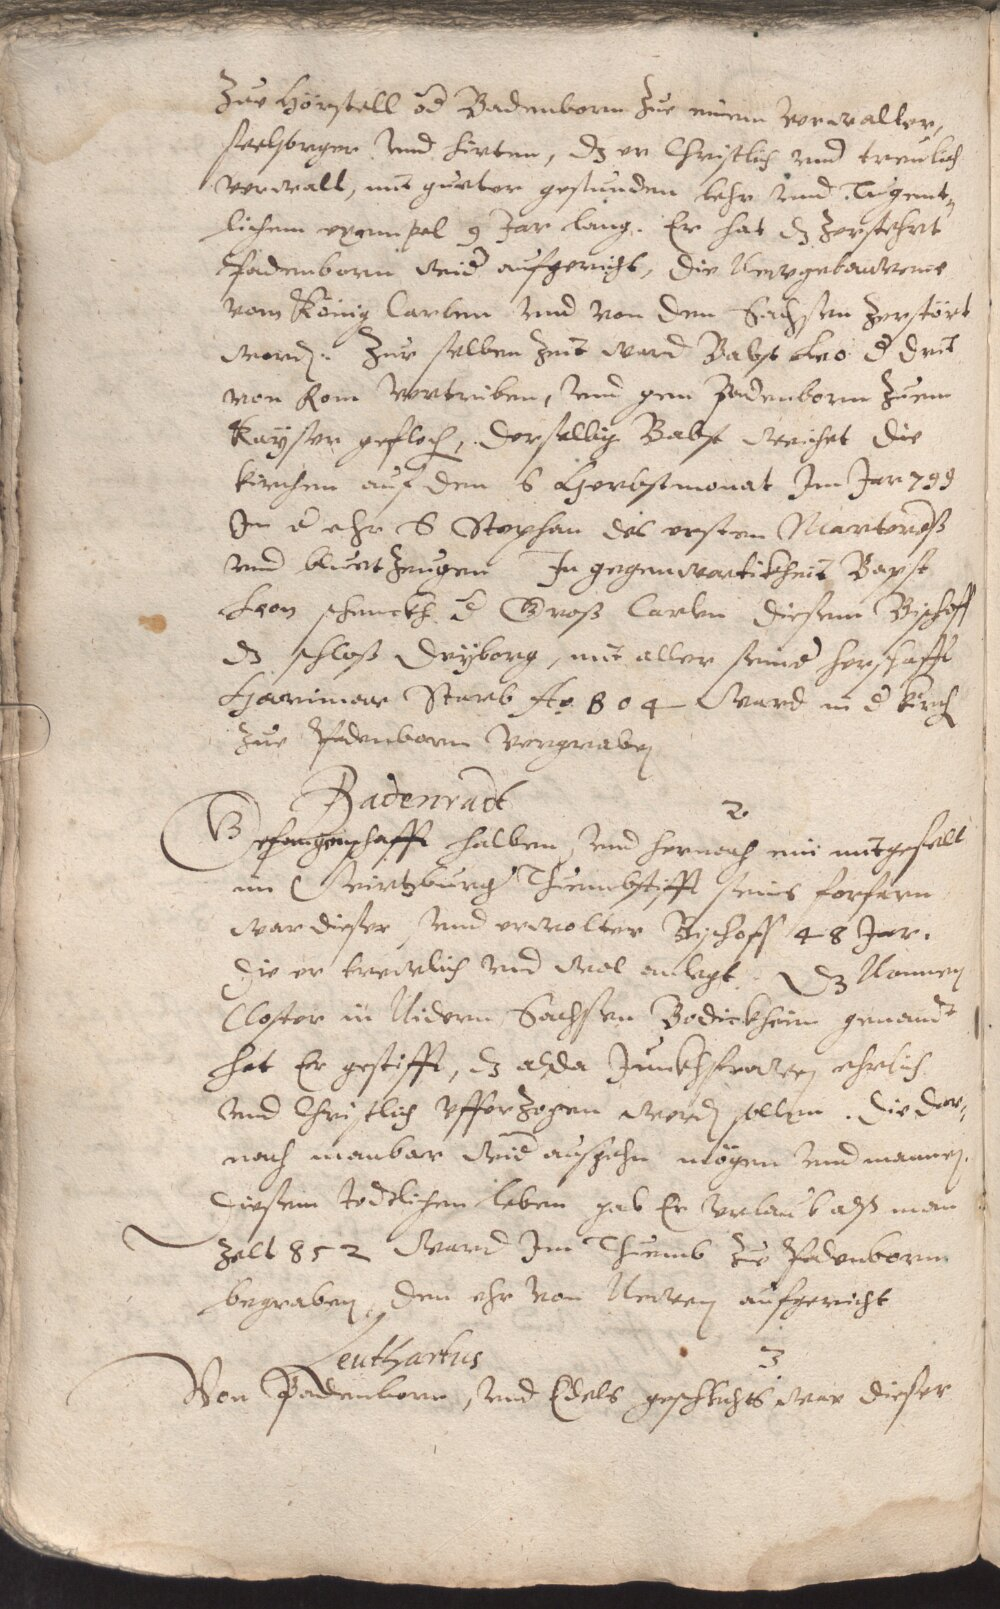 Zue Hörstell od Badenborn zue einem verwalter,
seelsorger und hirten, dz er Christlich und treulich
verwalt, mit gueter gesunden lehr und Tugent-
lichem exempel 9 Jar lang. Er hat dz zerstehrt
Padenborn wid aufgericht, die
vom König Carlen und von den Sachsen zerstört
word. Zur selben Zeit ward Babst Leo d drit
von Rom vertriben, und gen Padenborn zuem
Kayser gefloh, derselbig Babst weichet die
kirchen auf den 6 Herbstmonat Im Jar 799
In d ehr S Stephan des ersten Martereß
und bluetzeugen In gegenwertikheit Bapst
Leon schenckh d Groß Carlen diesem Bischoff
dz schloß Dryborg, mit aller seind herschafft
Harimar Starb Ao 804 Ward in d kirch
zue Padenborn vergraben
Badenradt 2
Gefangenschafft halben, und hernach ein mitgesell
im Wirtzburg Thuembstifft seins forfarn
war dieser, und erwolter Bischoff 48 Jar.
Die er treulich und wol anlegt. Dz Nonnen
Closter in Nidern Sachsen Bodickheim genandt
hat Er gestifft, dz alda Junckhfrawen ehrlich
und Christlich ufferzogen werd sollen. die dar-
nach manbar wid ausgehn mögen und mannen.
Diesem todtlichen leben gab Er urlaub alß man
zelt 852 Ward Im Thuemb zue Padenborn
begraben, den ehr von Newen aufgericht
Leuthartus 3
Von Padenborn, und Edels geschlechts war dieser